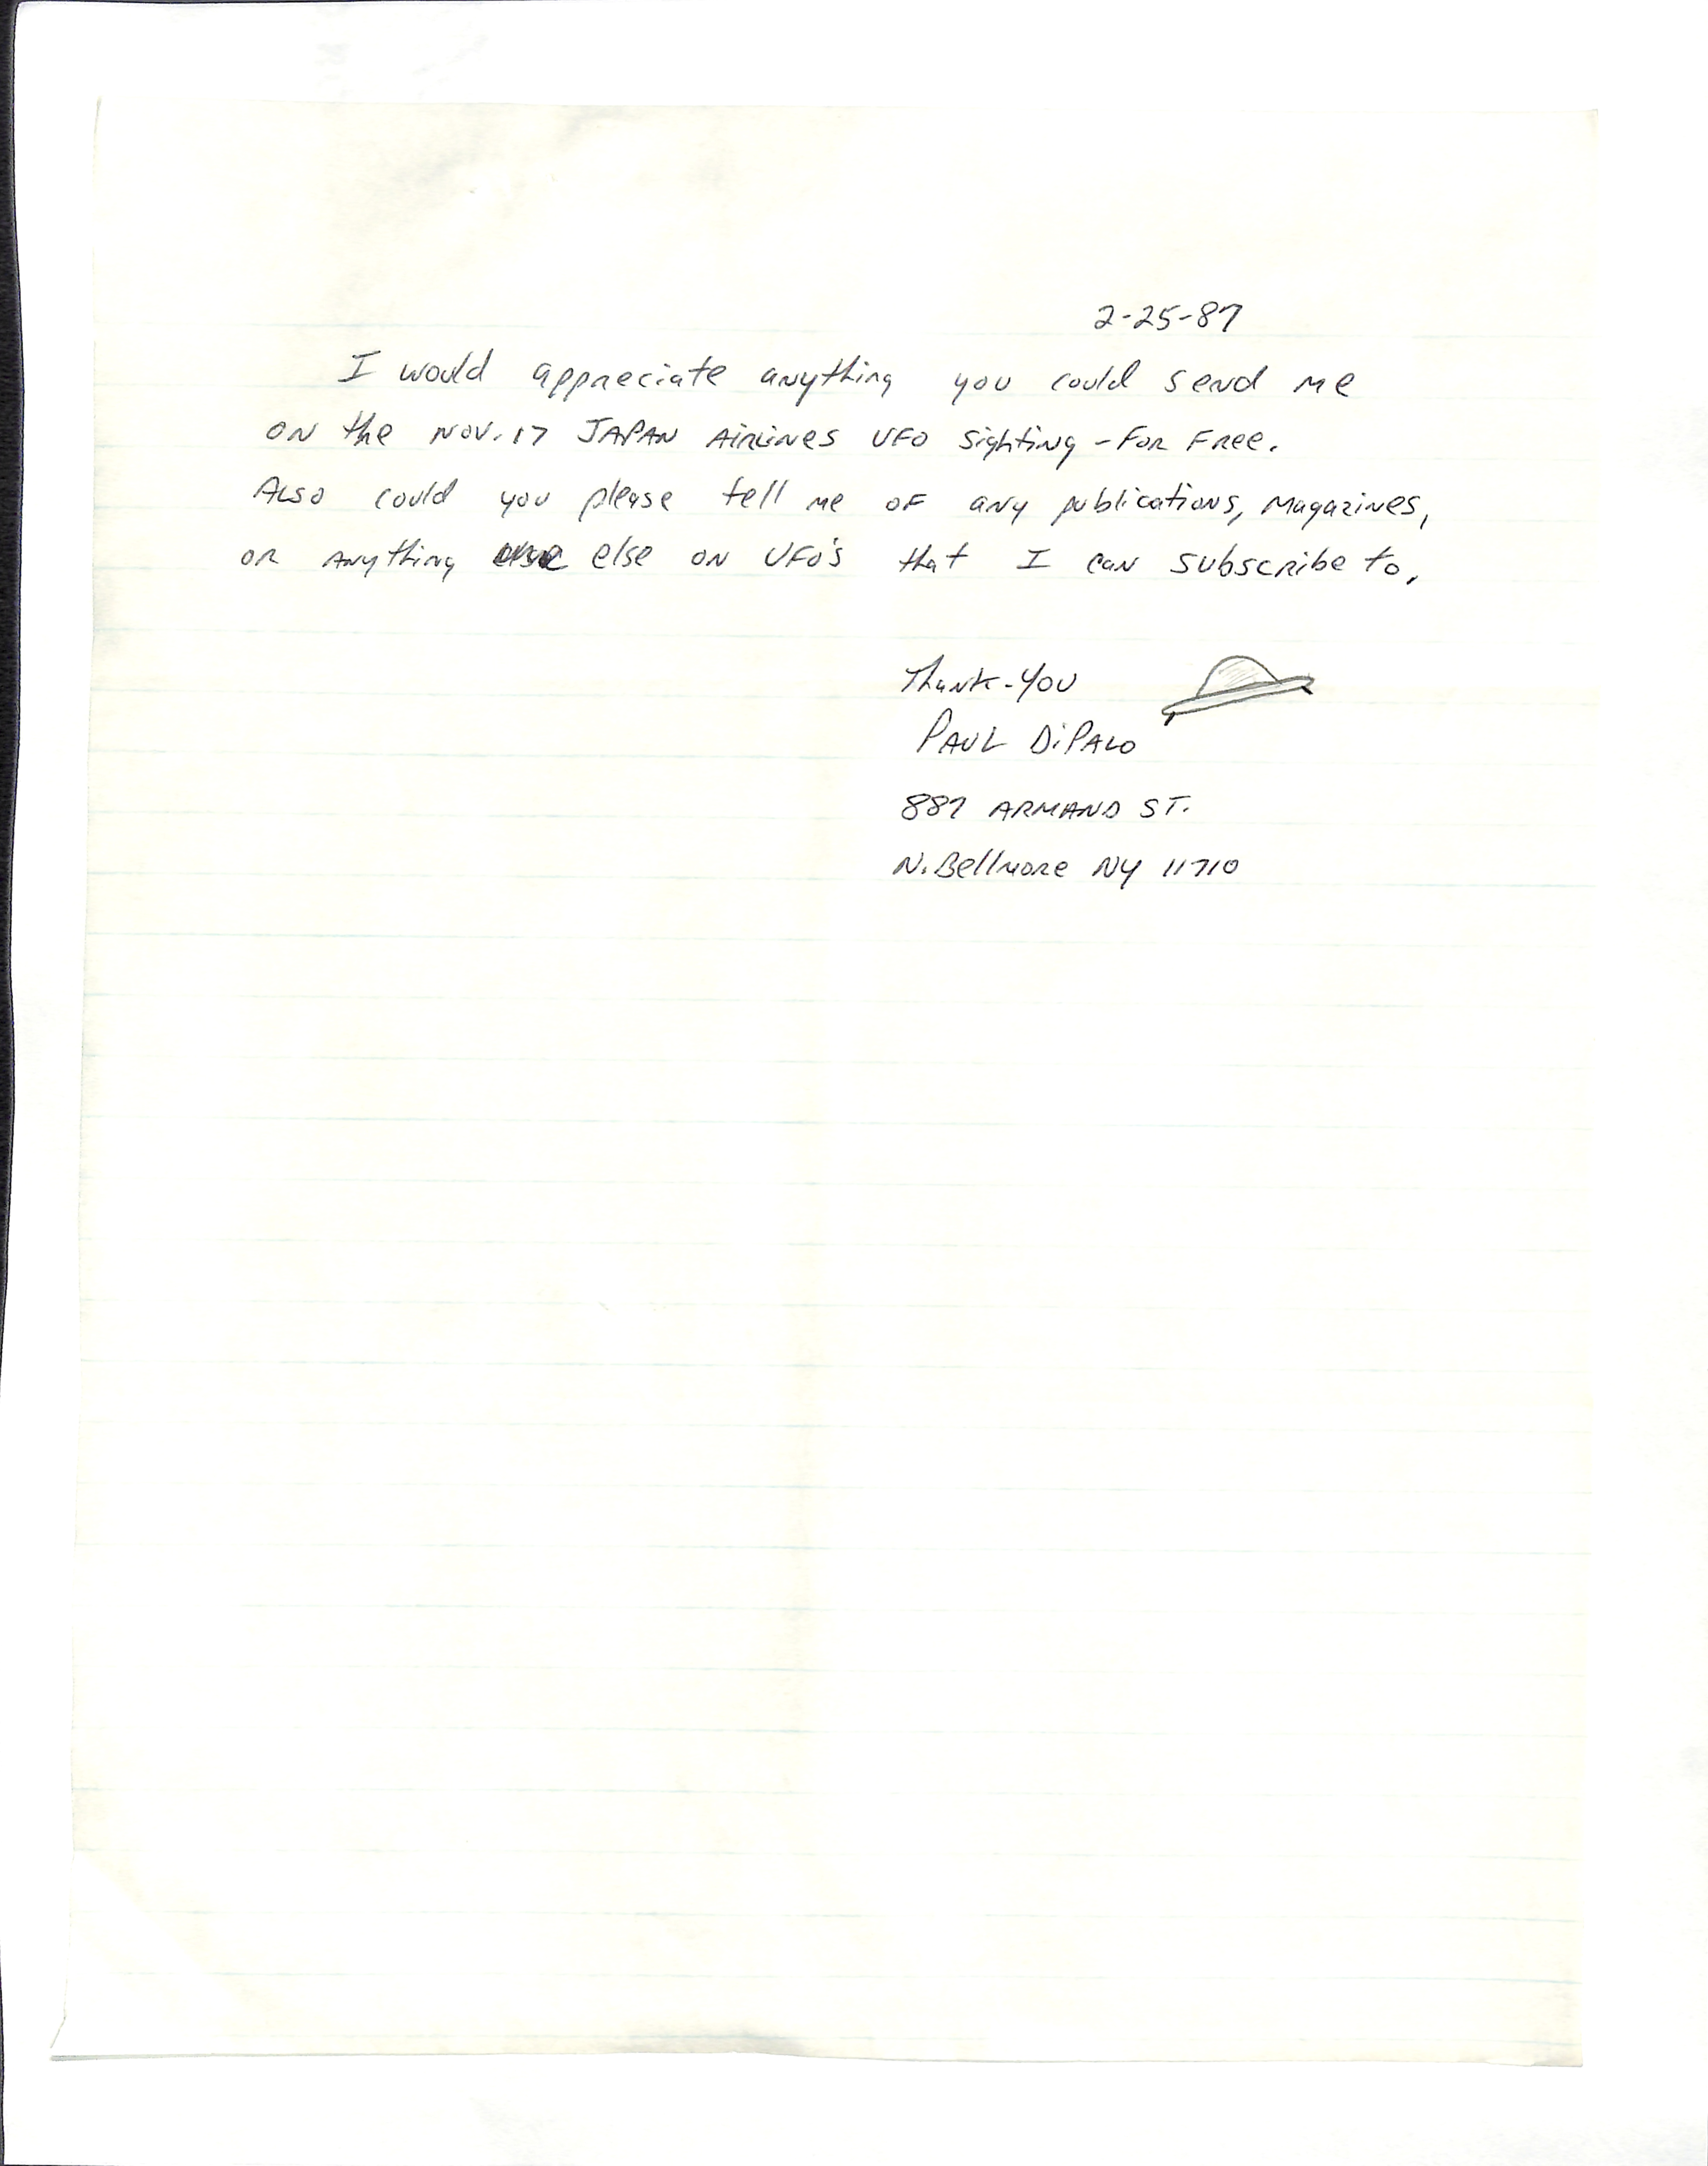 2-25-87
I would appreciate anything you could send me
on the Nov. 17 JAPAN AIRLINES UFO sighting - For Free.
Also could you please tell me of any publications, magazines,
or anything else on UFO's that I can subscribe to.
Thank-You
PAUL DiPALO
887 ARMAND ST.
N. Bellmore NY 11710